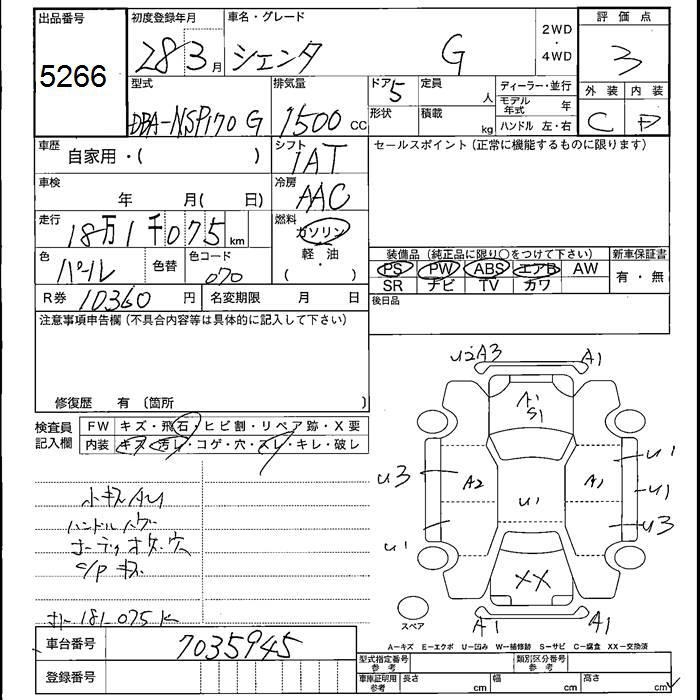 出品番号
5266
初度登録年月
28 3月
車名・グレード
シエンタ G
2WD
・
4WD
評価点
3
外装 内装
C D
型式
DBA-NSP170 G
排気量
1500 CC
ドア
5
形状
定員
人
積載
kg
ディーラー・並行
モデル年式 年
ハンドル 左・右
車歴
自家用・( )
シフト
IAT
セールスポイント(正常に機能するものに限ります)
車検
年 月( 日)
冷房
AAC
走行
18万1千075km
燃料
ガソリン
軽・油
( )
色
パール
色替
色コード
070
装備品(純正品に限り○をつけて下さい)
PS PW ABS エアB AW
SR ナビ TV カワ
新車保証書
有・無
R券 10360 円
名変期限 月 日
後日品
注意事項申告欄(不具合内容等は具体的に記入して下さい)
修復歴 有 〔箇所 〕
検査員記入欄
FW キズ・飛石・ヒビ割・リペア跡・X要
内装 キズ・汚レ・コゲ・穴・スレ・キレ・破レ
小キズ AU
C/P キズ
181.075K
U2 A3
A1
A1
S1
U3
A2
U1
A1
U1
U1
U3
U1
XX
A1
A1
スペア
A-キズ E-エクボ U-凹み W-補修跡 S-サビ C-腐食 XX-交換済
車台番号
7035945
登録番号
型式指定番号 参考
類別区分番号 参考
車庫証明用 参考
長さ cm
幅 cm
高さ cm